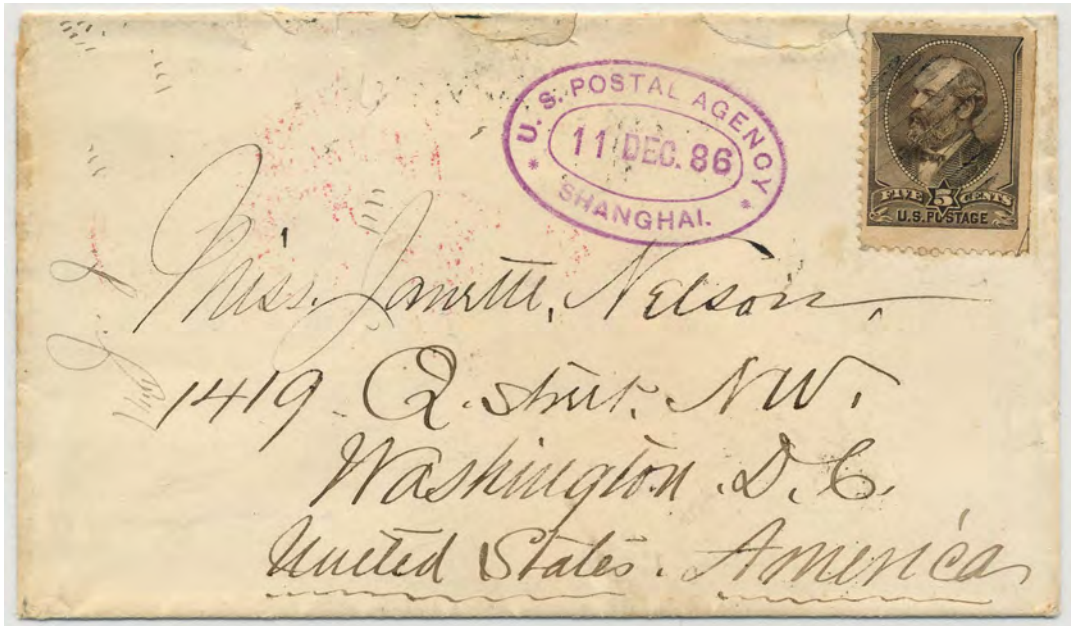 U. S. POSTAL AGENCY
11 DEC. 86
* SHANGHAI. *
FIVE 5 CENTS
U.S. POSTAGE
Miss. Janette, Nelson,
1419 Q. Street. NW.
Washington. D. C.
United States. America